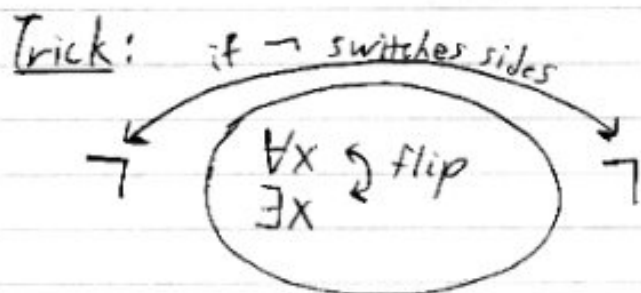 Trick: if ¬ switches sides
¬ ∀x flip ¬
∃x